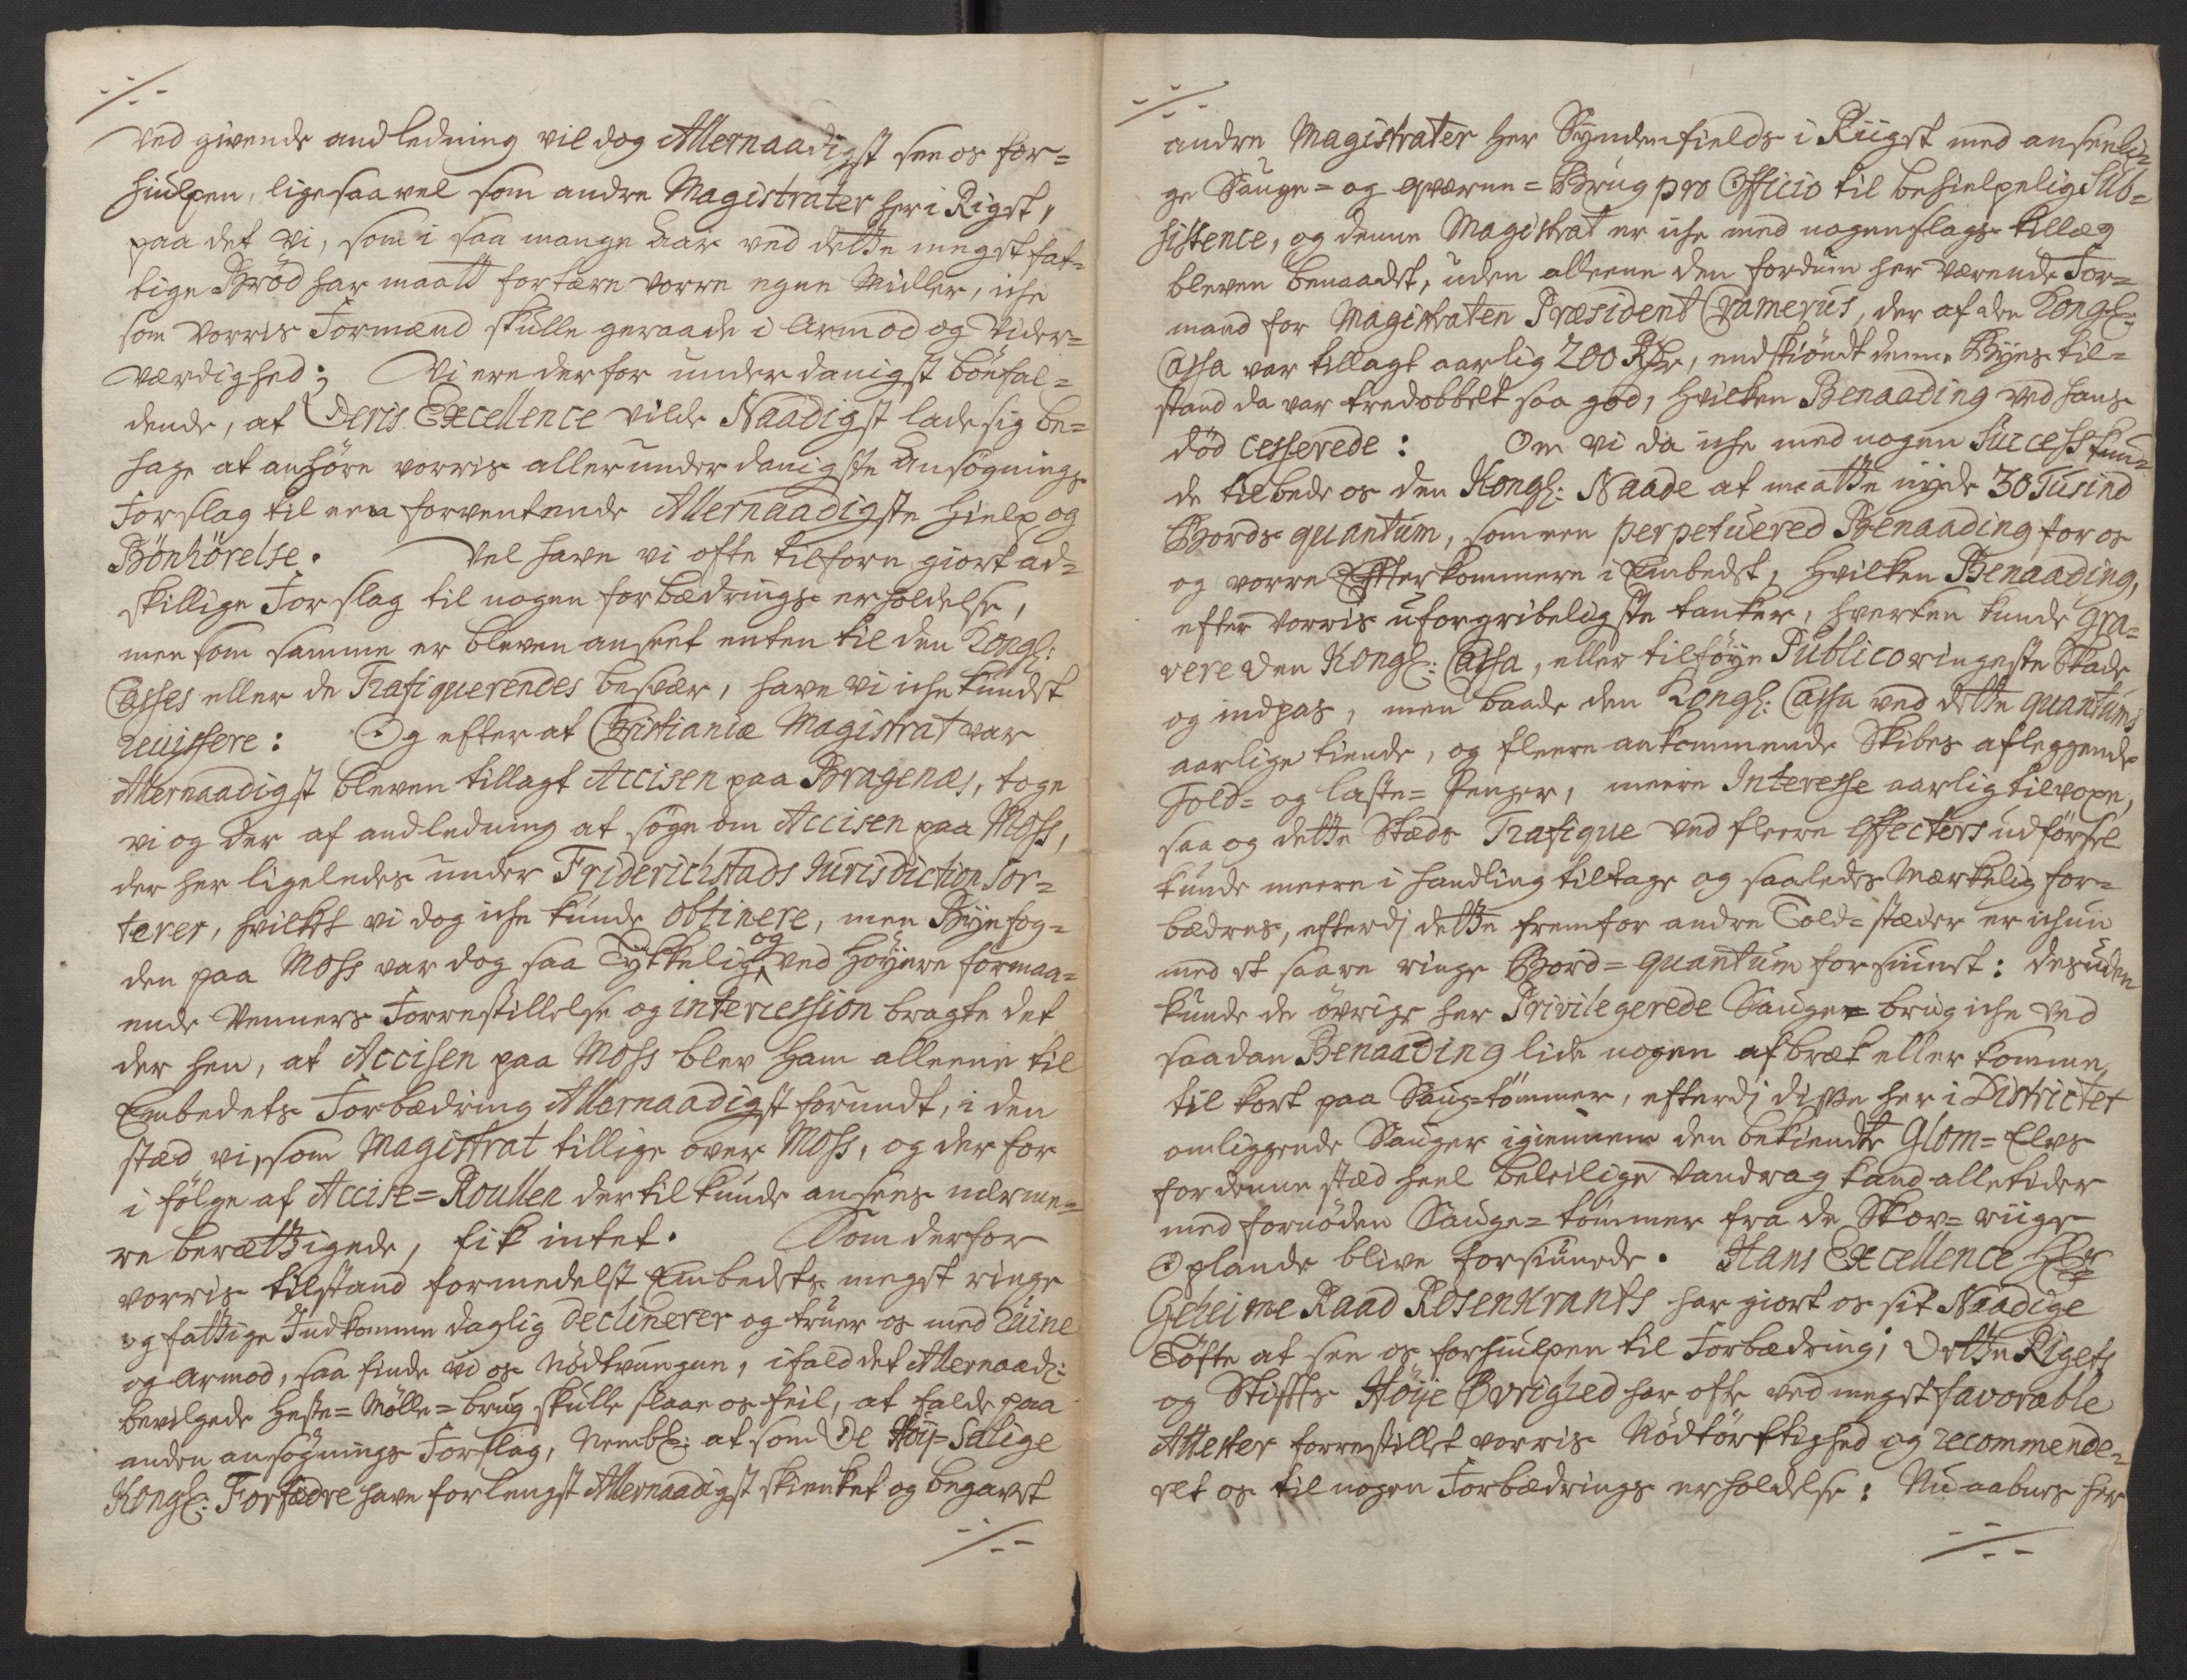 ./.
ved givende andledning vil dog Allernaadigst see os for=
hiulpen, ligesaavel som andre Magistrater her i Riget,
paa det vi, som i saa mange Aar ved dette meget fat=
tige Brød har maatt fortære vorre egne Midler, iche
som vorris Formænd skulle geraade i Armod og Vider=
værdighed; Vi ere derfor underdanigst bönfal=
dende, at Deris Excellence vilde Naadigst lade sig be=
hage at anhöre vorris allerunderdanigste Ansøgnings
Forslag til een forventende Allernaadigste Hielp og
Bönhörelse. Vel have vi ofte tilforn giort ad=
skillige Forslag til nogen forbædrings erholdelse,
men som samme er bleven anseet enten til den Kongl:
Casses eller de Trafiquerendes besvær, have vi iche kundet
reussere: Og efter at Christianiæ Magistrat var
Allernaadigst bleven tillagt Accisen paa Bragenæs, toge
vi og der af andledning at söge om Accisen paa Moss,
der her ligeledes under Friderichstads Jurisdiction sor=
terer, hvilket vi dog iche kunde obtinere, men Byefog=
den paa Moss var dog saa Lykkelig og ved Höyere formaa=
ende Venners Forrestillelse og intercession bragte det
der hen, at Accisen paa Moss blev ham alleene til
Embedets Forbædring Allernaadigst forundt, i den
stæd vi, som Magistrat tillige over Moss, og der for
i fölge af Accise=Roullen dertil kunde ansees nærme=
re berættigede, fik intet. Som derfor
vorris tilstand formedelst Embedets meget ringe
og fattige Indkomme daglig declinerer og truer os med ruine
og Armod, saa finde vi os nödtvungne, ifald det Allernaad:
bevilgede Heste=Mölle=brug skulle slaae os feil, at falde paa
anden ansøgnings Forslag, Nembl: at som De Höy=Salige
Kongl: Forfædre have forlengst Allernaadigst skienket og begavet
./.
./.
andre Magistrater her Syndenfields i Riiget med anseeli=
ge Sauge= og qværne=Brug pro Officio til behielpelig Sub=
sistence, og denne Magistrat er iche med nogen slags tillæg
bleven benaadet, uden alleene den fordum her værende For=
mand for Magistraten Præsident Cramerus, der af den Kongl:
Cassa var tillagt aarlig 200 Rdr, endskiöndt denne Byes til=
stand da var tredobbelt saa god, hvilken Benaading ved hans
död cesserede: Om vi da iche med nogen Success kun=
de tilbede os den Kongl: Naade at maatte nyde 30 Tusind
Bords quantum, som een perpetuered Benaading for os
og vorre Effterkommere i Embedet, hvilken Benaading,
efter vorris uforgribeligste tanker, hverken kunde gra=
vere den Kongl: Cassa, eller tilföye Publico ringeste Skade
og indpas, men baade den Kongl: Cassa ved dette quantums
aarlige tiende, og fleere ankommende Skibes afleggende
Told= og laste=Penger, meere Interesse aarlig tilvoxe,
saa og dette Stæds Trafique ved fleere effecters udförsel
kunde meere i handling tiltage og saaledes mærkelig for=
bædres, efterdj dette fremfor andre Told=stæder er ichun
med et saare ringe Bord=quantum forsiunet: desuden
kunde de övrige her Privilegerede Sauge=brug iche ved
saadan Benaading lide nogen afbræk eller komme
til kort paa Saug=tömmer, efterdj disse her i Districtet
omliggende Sauger igiennem den bekiendte Glom=Elvs
for denne stæd heel beleilige Vandrag kand alletider
med fornöden Sauge=tömmer fra de Skov=riige
Oplande blive forsiunede. Hans Excellence Hr
Geheime Raad Rosenkrants har giort os sit Naadige
Löfte at see os forhiulpen til Forbædring; Dette Rigets
og Stiffts Höye Øvrighed har ofte ved meget favorable
Attester forrestillet vorris Nödtörftighed og recommende=
ret os til nogen Forbædrings erholdelse: Nu aabnes her
./.